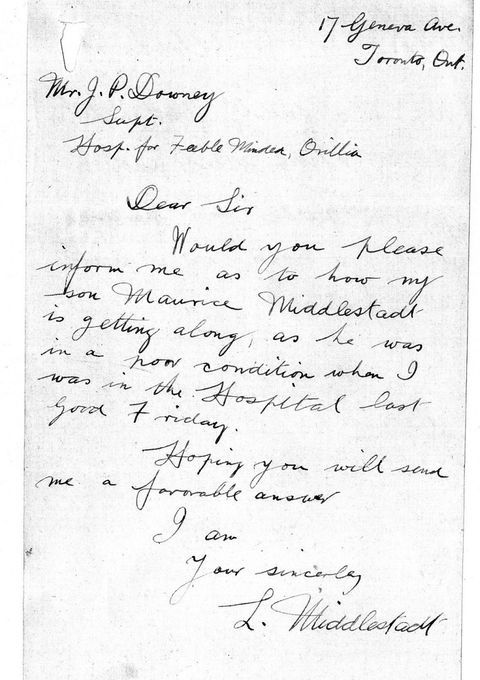 17 Geneva Ave.
Toronto, Ont.
Mr. J. P. Downey
Supt.
Hosp. for Feeble Minded, Orillia
Dear Sir
Would you please
inform me as to how my
son Maurice Middlestadt
is getting along, as he was
in a poor condition when I
was in the Hospital last
Good Friday.
Hoping you will send
me a favorable answer
I am
Your sincerley
L. Middlestadt